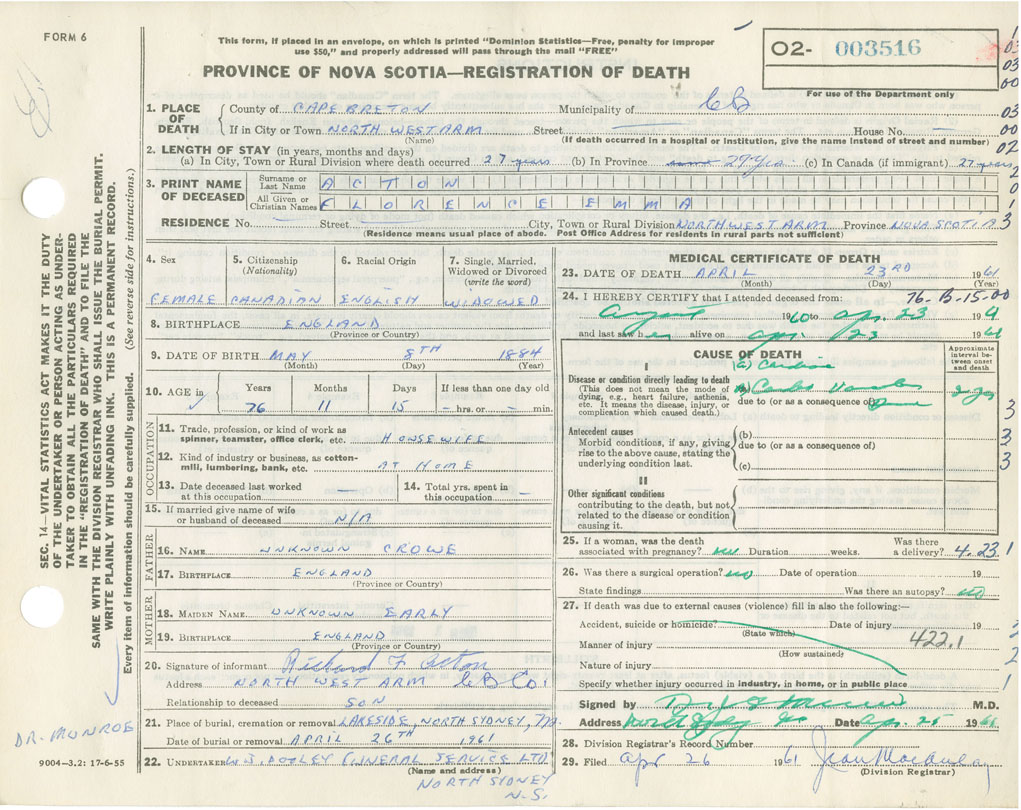 FORM 6
This form, if placed in an envelope, on which is printed "Dominion Statistics—Free, penalty for improper
use $50," and properly addressed will pass through the mail "FREE"
O2- 003516
For use of the Department only
PROVINCE OF NOVA SCOTIA—REGISTRATION OF DEATH
1. PLACE OF DEATH
County of CAPE BRETON Municipality of CB
If in City or Town NORTH WEST ARM Street House No. —
(Name) (If death occurred in a hospital or Institution, give the name instead of street and number)
2. LENGTH OF STAY (in years, months and days)
(a) In City, Town or Rural Division where death occurred 27 years (b) In Province 27 yrs (c) In Canada (if immigrant) 27 years
3. PRINT NAME OF DECEASED
Surname or Last Name ACTON
All Given or Christian Names FLORENCE EMMA
RESIDENCE No. Street City, Town or Rural Division NORTH WEST ARM Province NOVA SCOTIA
(Residence means usual place of abode. Post Office Address for residents in rural parts not sufficient)
4. Sex
FEMALE
5. Citizenship
(Nationality)
CANADIAN
6. Racial Origin
ENGLISH
7. Single, Married, Widowed or Divorced
(write the word)
WIDOWED
8. BIRTHPLACE ENGLAND
(Province or Country)
9. DATE OF BIRTH MAY 8TH 1884
(Month) (Day) (Year)
10. AGE in
Years Months Days If less than one day old
76 11 15 - hrs. or - min.
OCCUPATION
11. Trade, profession, or kind of work as
spinner, teamster, office clerk, etc. HOUSEWIFE
12. Kind of industry or business, as cotton-
mill, lumbering, bank, etc. AT HOME
13. Date deceased last worked
at this occupation —
14. Total yrs. spent in
this occupation —
15. If married give name of wife
or husband of deceased N/A
FATHER
16. NAME UNKNOWN CROWE
17. BIRTHPLACE ENGLAND
(Province or Country)
MOTHER
18. MAIDEN NAME UNKNOWN EARLY
19. BIRTHPLACE ENGLAND
(Province or Country)
20. Signature of informant Richard F Acton
Address NORTH WEST ARM CB Co.
Relationship to deceased SON
21. Place of burial, cremation or removal LAKESIDE, NORTH SYDNEY,
Date of burial or removal APRIL 26TH 1961
22. UNDERTAKER W.J. DOOLEY FUNERAL SERVICE LTD
(Name and address)
NORTH SYDNEY
N.S.
MEDICAL CERTIFICATE OF DEATH
23. DATE OF DEATH APRIL 23RD 1961
(Month) (Day) (Year)
24. I HEREBY CERTIFY that I attended deceased from: 76-B-15-00
August 1960 to Apr. 23 19
and last saw h er alive on apr. 23 1961
CAUSE OF DEATH
Approximate interval between onset and death
I
Disease or condition directly leading to death
(This does not mean the mode of
dying, e.g., heart failure, asthenia,
etc. It means the disease, injury, or
complication which caused death.)
(a) Cardiac
(a)
due to (or as a consequence of)
Antecedent causes
Morbid conditions, if any, giving
rise to the above cause, stating the
underlying condition last.
(b)
due to (or as a consequence of)
(c)
II
Other significant conditions
contributing to the death, but not
related to the disease or condition
causing it.
25. If a woman, was the death
associated with pregnancy? no Duration weeks. Was there
a delivery? 4.23.1
26. Was there a surgical operation? no Date of operation 19
State findings Was there an autopsy? no
27. If death was due to external causes (violence) fill in also the following:—
Accident, suicide or homicide? Date of injury 19
(State which)
Manner of injury 422.1
(How sustained)
Nature of injury
Specify whether injury occurred in industry, in home, or in public place
Signed by M.D.
Address North Sydney NS Date Apr. 25 1961
28. Division Registrar's Record Number
29. Filed Apr 26 1961 Jean
(Division Registrar)
SEC. 14—VITAL STATISTICS ACT MAKES IT THE DUTY
OF THE UNDERTAKER OR PERSON ACTING AS UNDER-
TAKER TO OBTAIN ALL THE PARTICULARS REQUIRED
IN THE "REGISTRATION OF DEATH" AND TO FILE THE
SAME WITH THE DIVISION REGISTRAR WHO SHALL ISSUE THE BURIAL PERMIT.
WRITE PLAINLY WITH UNFADING INK. THIS IS A PERMANENT RECORD.
Every item of information should be carefully supplied. (See reverse side for instructions.)
DR. MUNROE
9004—3.2: 17-6-55